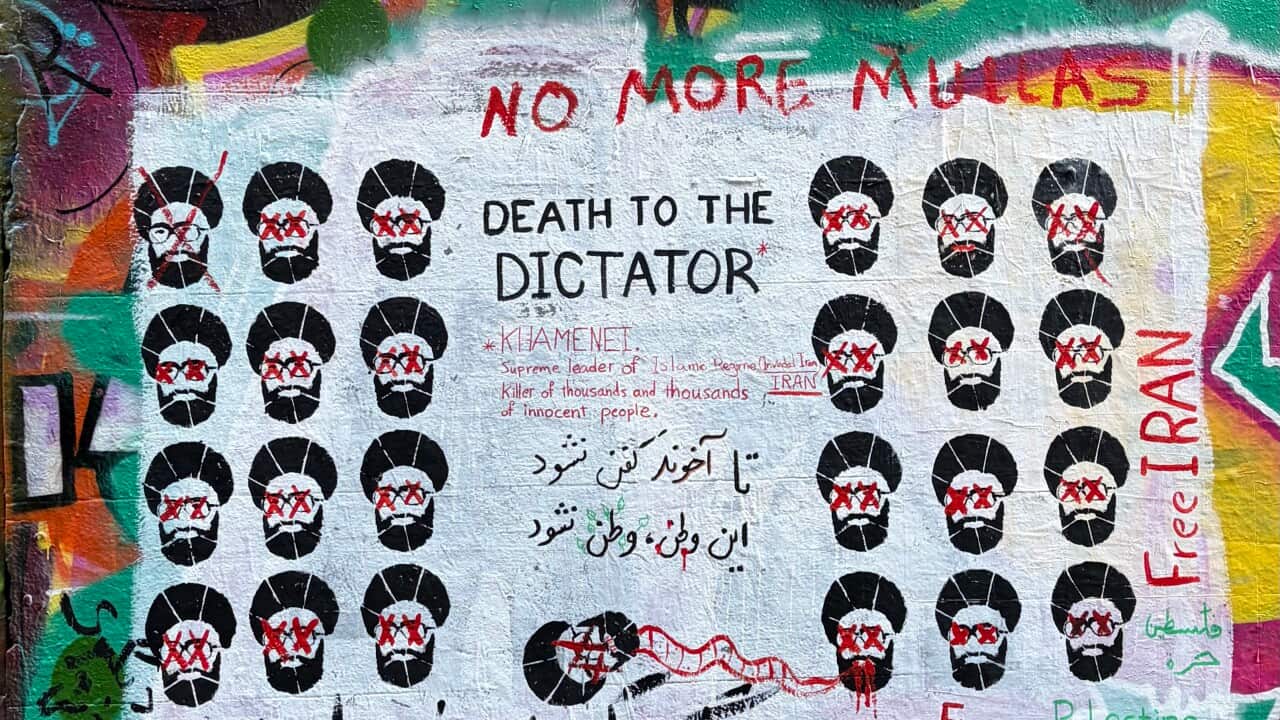 NO MORE MULLAS
DEATH TO THE
DICTATOR*
*KHAMENEI.
Supreme leader of Islamic Regime Iran
IRAN
Killer of thousands and thousands
of innocent people.
تا آخوند کفن نشود
این وطن، وطن نشود
Free IRAN
فلسطين
حره